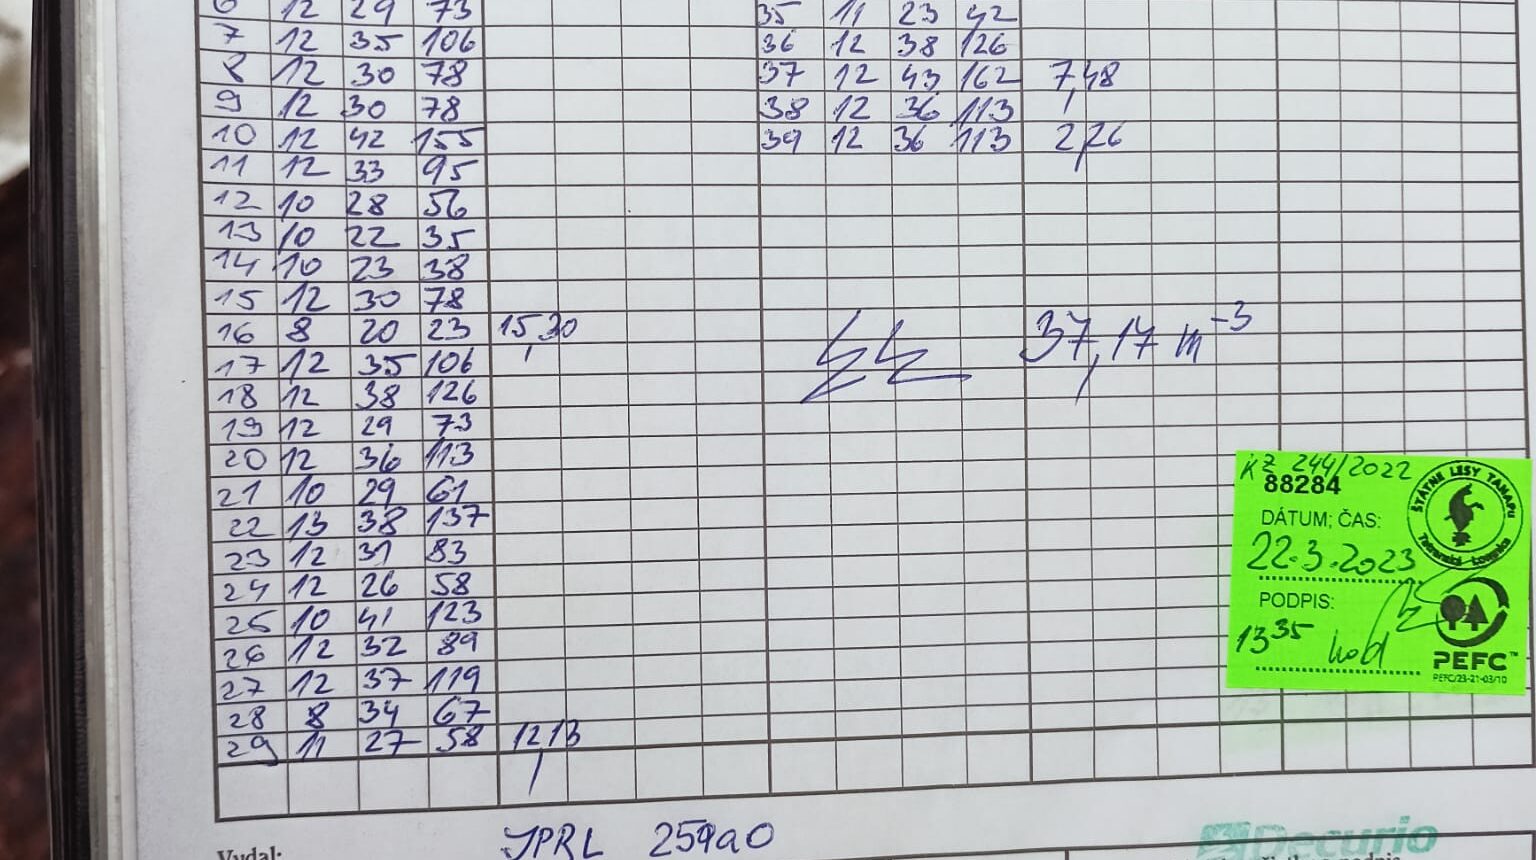 6 12 29 73
7 12 35 106
8 12 30 78
9 12 30 78
10 12 42 155
11 12 33 95
12 10 28 56
13 10 22 35
14 10 23 38
15 12 30 78
16 8 20 23 15,30
17 12 35 106
18 12 38 126
19 12 29 73
20 12 36 113
21 10 29 61
22 13 38 137
23 12 31 83
24 12 26 58
25 10 41 123
26 12 32 89
27 12 37 119
28 8 34 67
29 11 27 58 12,13
35 11 23 42
36 12 38 126
37 12 43 162 7,48
38 12 36 113
39 12 36 113 2,26
37,17 m-3
KZ 244/2022
88284
DÁTUM; ČAS:
22.3.2023
PODPIS:
13 35 hod
ŠTÁTNE LESY TANAPu
Tatranská Lomnica
PEFC™
PEFC/23-21-03/10
JPRL 259a0
Vydal:
Decurio